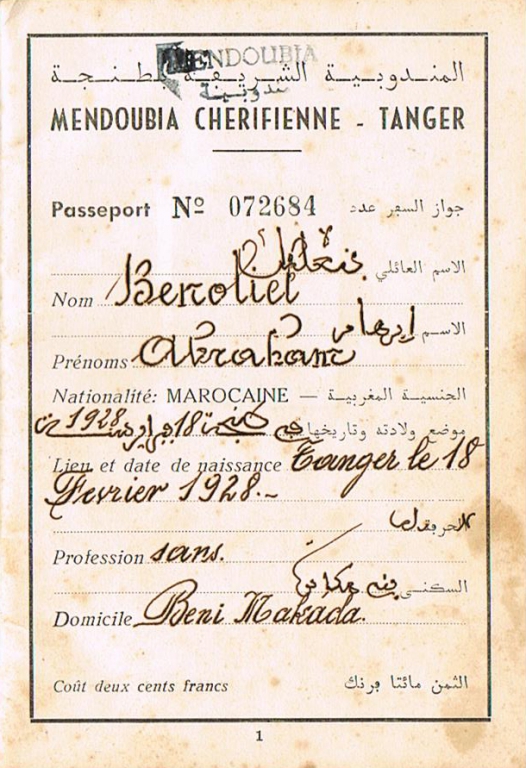 MENDOUBIA
المندوبية الشريفة بطنجة
MENDOUBIA CHERIFIENNE - TANGER
Passeport Nº 072684 جواز السفر عدد
الاسم العائلي
Nom Benoliel
الاسم
Prénoms Abraham
Nationalité: MAROCAINE — الجنسية المغربية
موضع ولادته وتاريخها
18 1928
Lieu et date de naissance Tanger le 18
Fevrier 1928.-
الحرفة
Profession sans.
السكنى بني مكادة
Domicile Beni Makada.
Coût deux cents francs الثمن مائتا فرنك
1